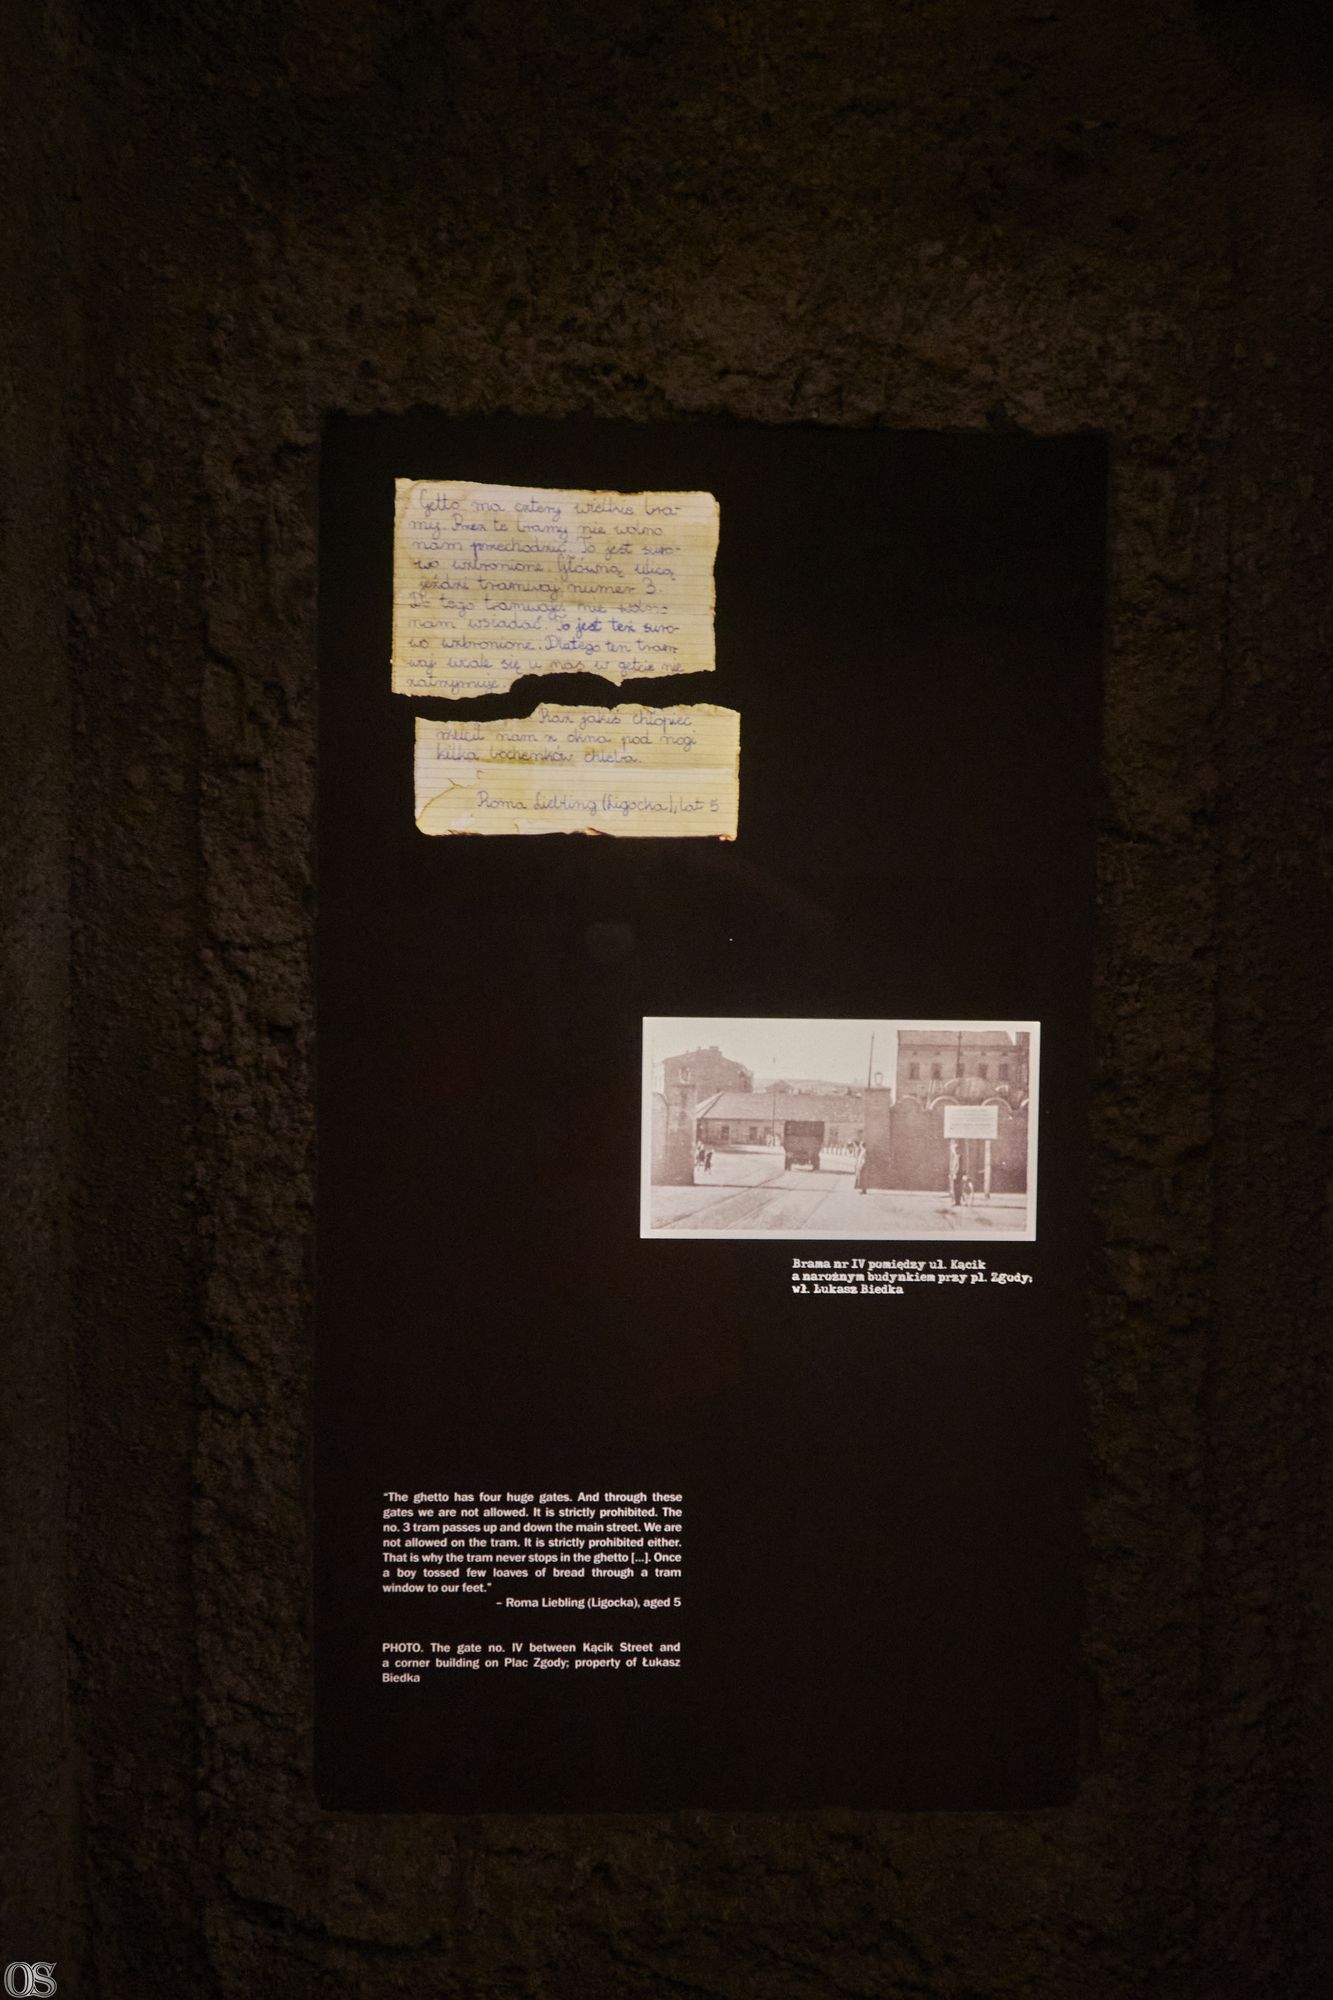 Getto ma cztery wielkie bra-
my. Przez te bramy nie wolno
nam przechodzić. To jest suro-
wo wzbronione. Główną ulicą
jeździ tramwaj numer 3.
Do tego tramwaju nie wolno
nam wsiadać. To jest też suro-
wo wzbronione. Dlatego ten tram-
waj wcale się u nas w getcie nie
zatrzymuje.
Raz jakiś chłopiec
rzucił nam z okna pod nogi
kilka bochenków chleba.
Roma Liebling (Ligocka), lat 5
Brama nr IV pomiędzy ul. Kącik
a narożnym budynkiem przy pl. Zgody;
wł. Łukasz Biedka
"The ghetto has four huge gates. And through these
gates we are not allowed. It is strictly prohibited. The
no. 3 tram passes up and down the main street. We are
not allowed on the tram. It is strictly prohibited either.
That is why the tram never stops in the ghetto [...]. Once
a boy tossed few loaves of bread through a tram
window to our feet."
– Roma Liebling (Ligocka), aged 5
PHOTO. The gate no. IV between Kącik Street and
a corner building on Plac Zgody; property of Łukasz
Biedka
OS